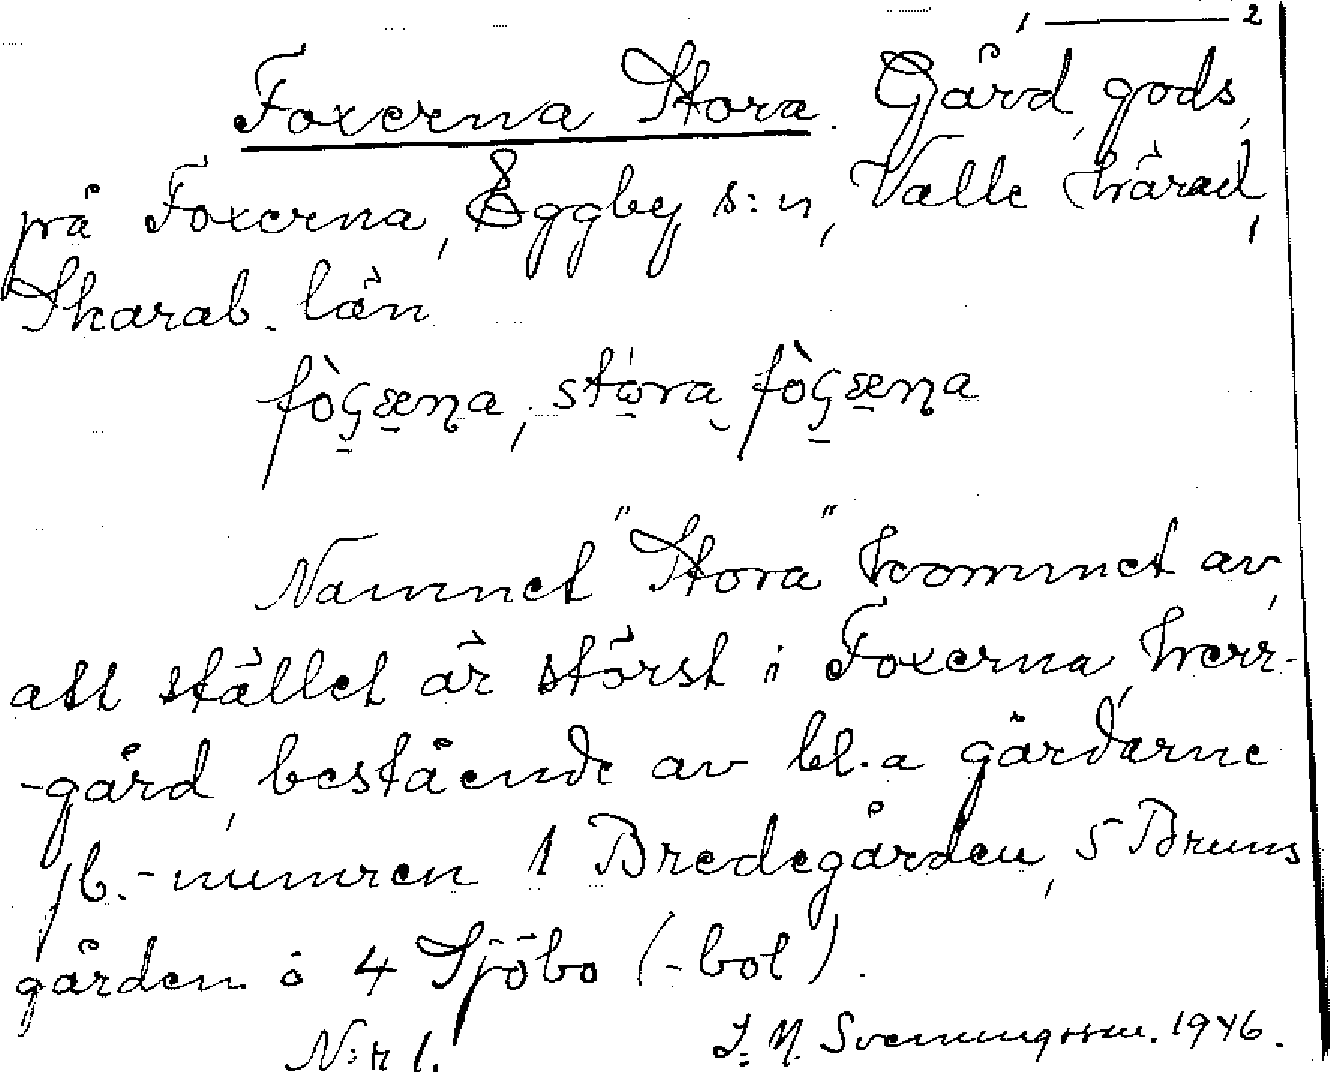 1 — 2
Foxerna Stora. Gård, gods,
på Foxerna, Eggby s:n, Valle härad,
Skarab. län
Namnet "Stora" kommet av,
att stället är störst i Foxerna, herr-
-gård, bestående av bl.a gårdarne
jb.-numren 1 Bredegården, 5 Bruns
gården o 4 Sjöbo (-bol).
N:r 1. Svenungsson. 1946.